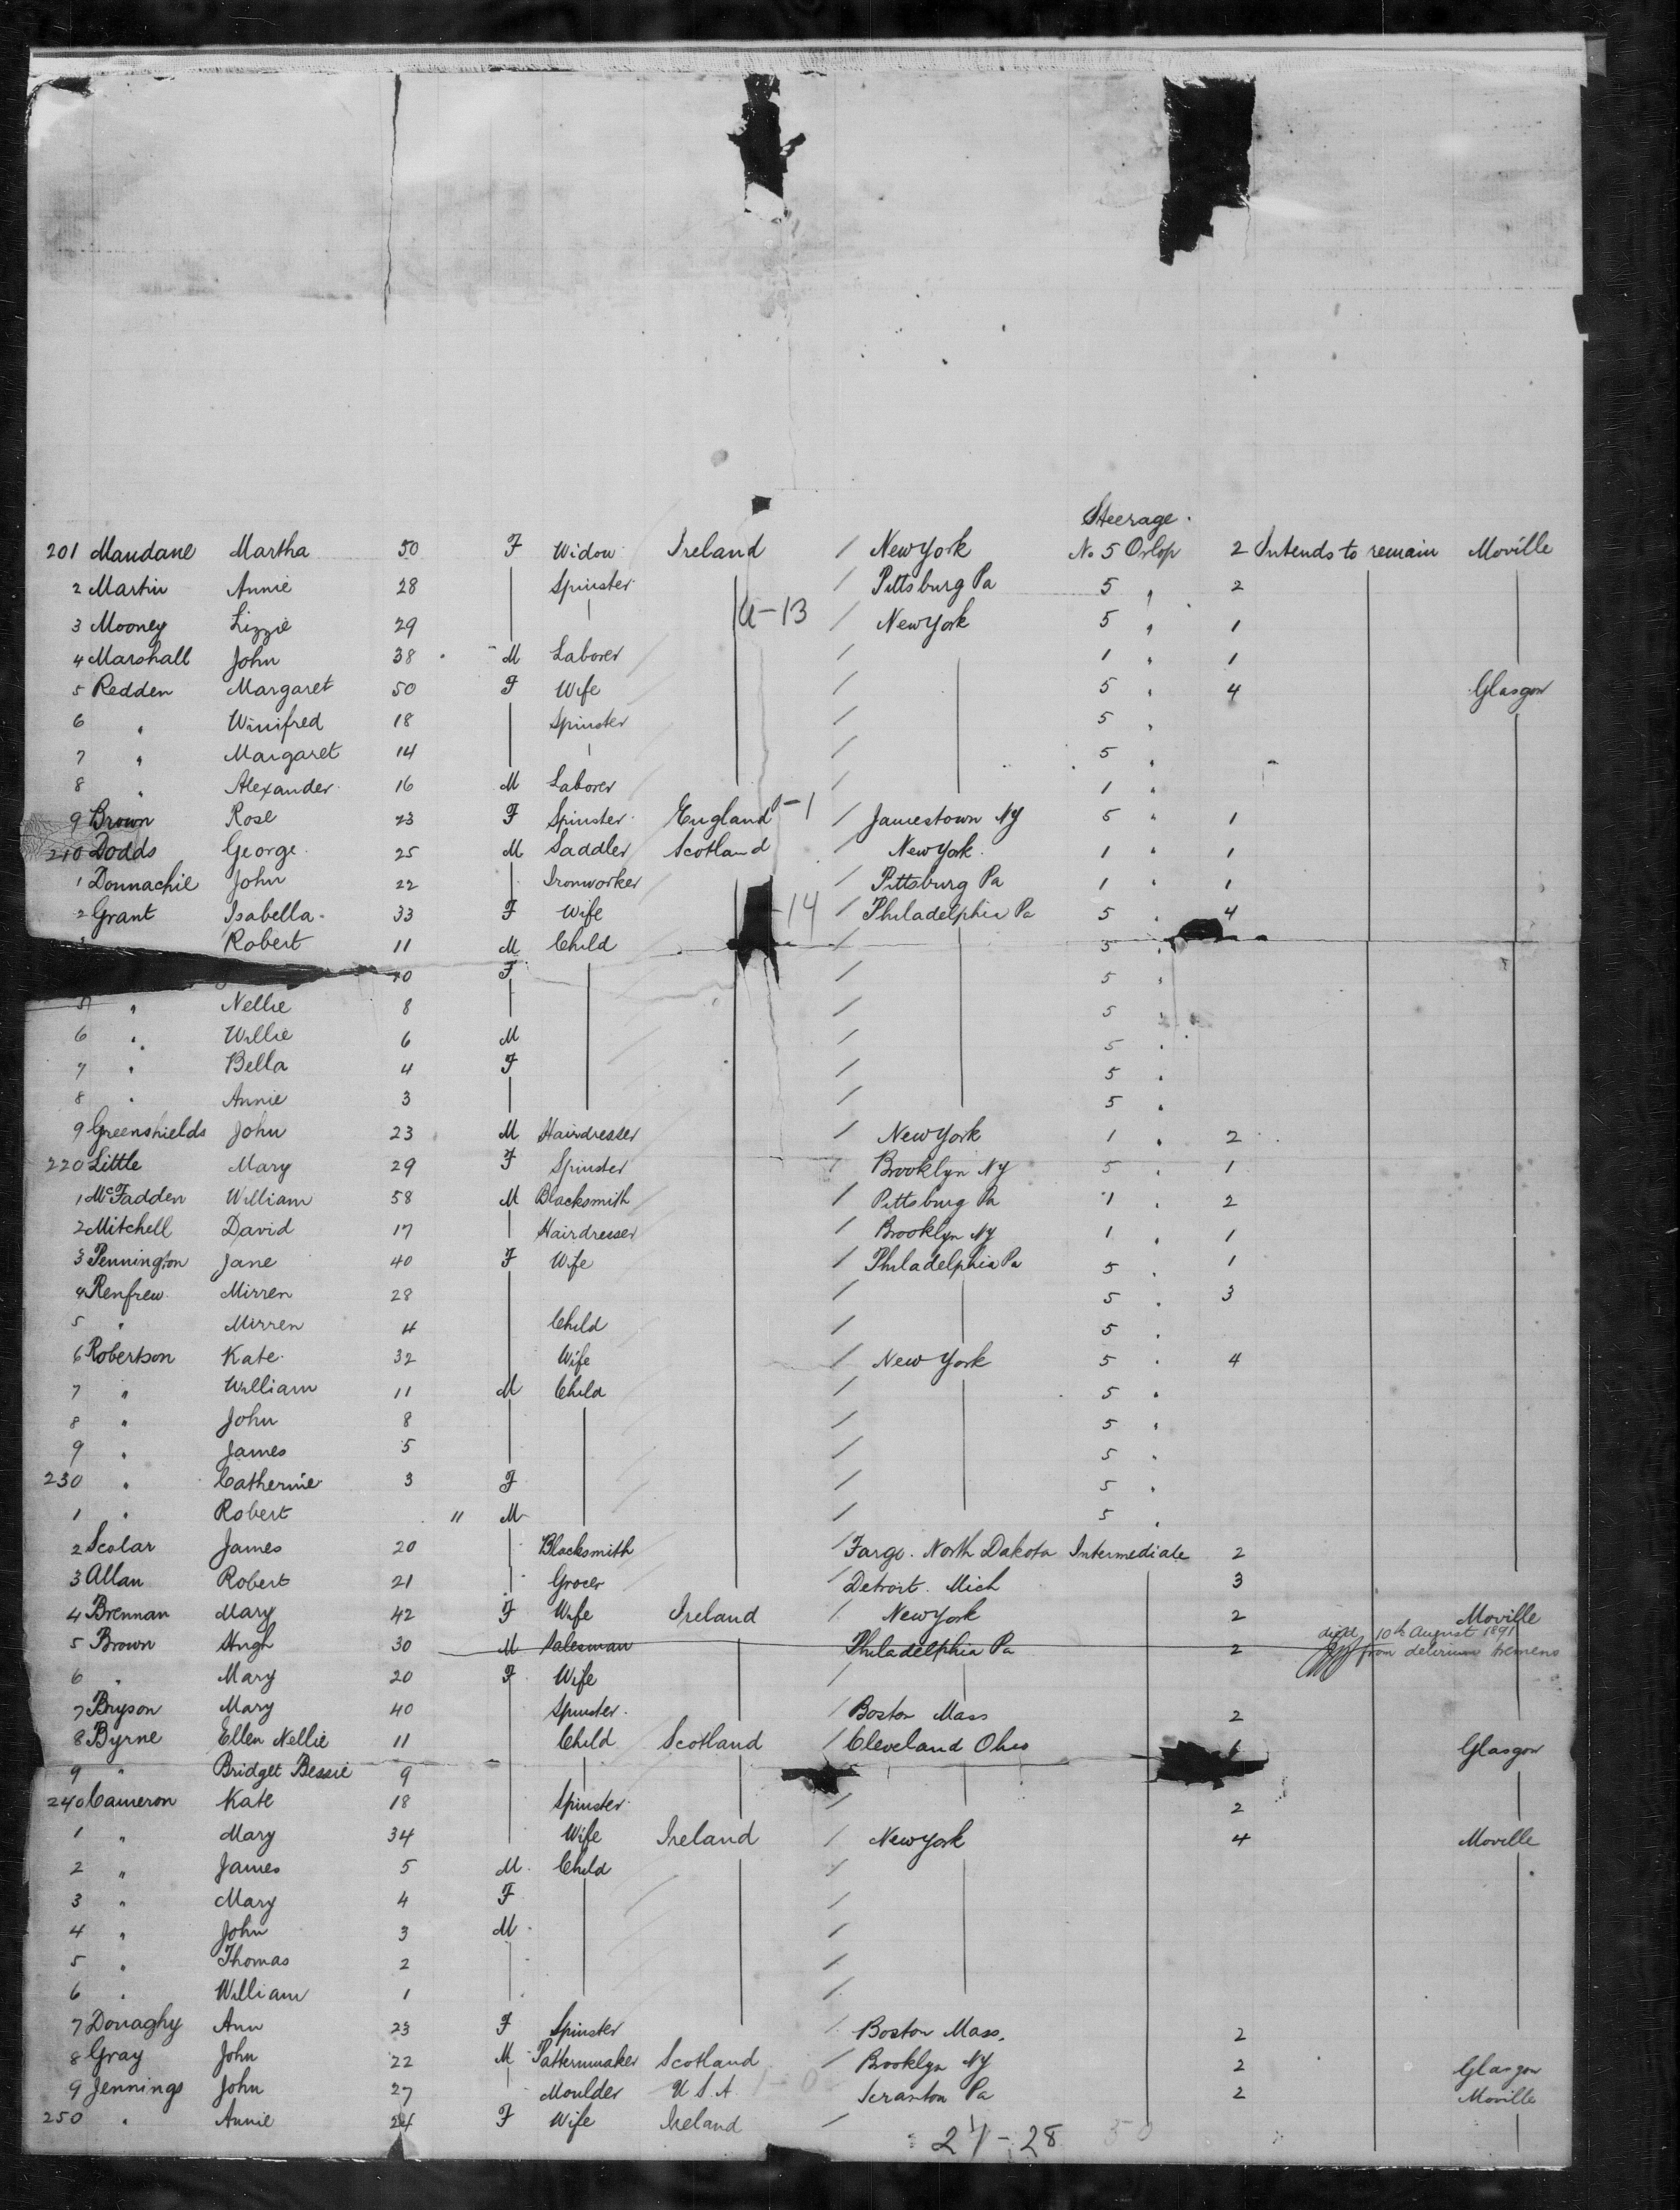 Steerage.
201 Mandane Martha 50 F Widow Ireland / New York No 5 Orlop 2 Intends to remain Moville
2 Martin Annie 28 Spinster / Pittsburg Pa 5 " 2
3 Mooney Lizzie 29 U-13 / New York 5 " 1
4 Marshall John 38 M Laborer / 1 " 1
5 Redden Margaret 50 F Wife / 5 " 4 Glasgow
6 " Winifred 18 Spinster / 5 "
7 " Margaret 14 / 5 "
8 " Alexander 16 M Laborer / 1 "
9 Brown Rose 23 F Spinster England -1 / Jamestown NY 5 " 1
210 Dodds George 25 M Saddler Scotland New York 1 " 1
1 Donnachie John 22 Ironworker / Pittsburg Pa 1 " 1
2 Grant Isabella 33 F Wife -14 / Philadelphia Pa 5 " 4
Robert 11 M Child / 5 "
10 F / 5 "
5 " Nellie 8 / 5 "
6 " Willie 6 M / 5 "
7 " Bella 4 F / 5 "
8 " Annie 3 / 5 "
9 Greenshields John 23 M Hairdresser / New York 1 " 2
220 Little Mary 29 F Spinster / Brooklyn NY 5 " 1
1 McFadden William 58 M Blacksmith / Pittsburg Pa 1 " 2
2 Mitchell David 17 Hairdresser / Brooklyn NY 1 " 1
3 Pennington Jane 40 F Wife / Philadelphia Pa 5 " 1
4 Renfrew Mirren 28 / 5 " 3
5 " Mirren 4 Child / 5 "
6 Robertson Kate 32 Wife / New York 5 " 4
7 " William 11 M Child / 5 "
8 " John 8 / 5 "
9 " James 5 / 5 "
230 " Catherine 3 F / 5 "
1 " Robert " M / 5 "
2 Scolar James 20 Blacksmith / Fargo. North Dakota Intermediate 2
3 Allan Robert 21 Grocer / Detroit. Mich 3
4 Brennan Mary 42 F Wife Ireland / New York 2 Moville
5 Brown Hugh 30 M Salesman Philadelphia Pa 2 died 10th August 1891 from delirium tremens
6 " Mary 20 F Wife /
7 Bryson Mary 40 Spinster / Boston Mass 2
8 Byrne Ellen Nellie 11 Child Scotland / Cleveland Ohio Glasgow
9 " Bridget Bessie 9
240 Cameron Kate 18 Spinster / 2
1 " Mary 34 Wife Ireland / New York 4 Moville
2 " James 5 M Child /
3 " Mary 4 F /
4 " John 3 M /
5 " Thomas 2 /
6 " William 1 /
7 Donaghy Ann 23 F Spinster / Boston Mass. 2
8 Gray John 22 M Patternmaker Scotland / Brooklyn NY 2 Glasgow
9 Jennings John 27 Moulder U.S.A. 1-0 Scranton Pa 2 Moville
250 " Annie 24 F Wife Ireland /
50